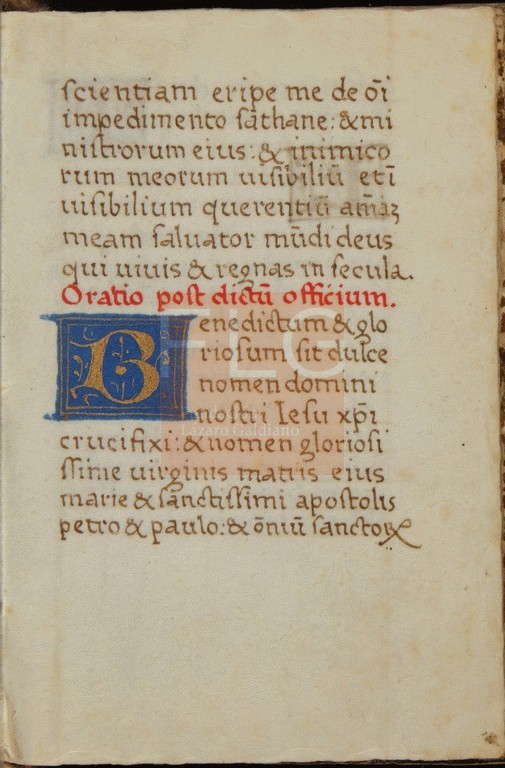 scientiam eripe me de oī
impedimento sathane: & mi
nistrorum eius: & inimico
rum meorum uisibiliū et ī
uisibilium querentiū am̄aꝫ
meam saluator mūdi deus
qui uiuis & regnas in secula.
Oratio post dictū officium.
Benedictum & glo
riosum sit dulce
nomen domini
nostri Iesu xp̄i
crucifixi: & nomen gloriosi
ssime uirginis matris eius
marie & sanctissimi apostolis
petro & paulo: & ōniū sanctoꝝ
FLG
Lázaro Galdiano